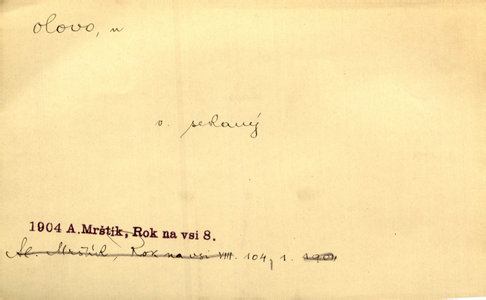 olovo, n
v. sekaný
1904 A. Mrštík, Rok na vsi 8.
Al. Mrštík, Rok na vsi VIII. 104, 1. 1904